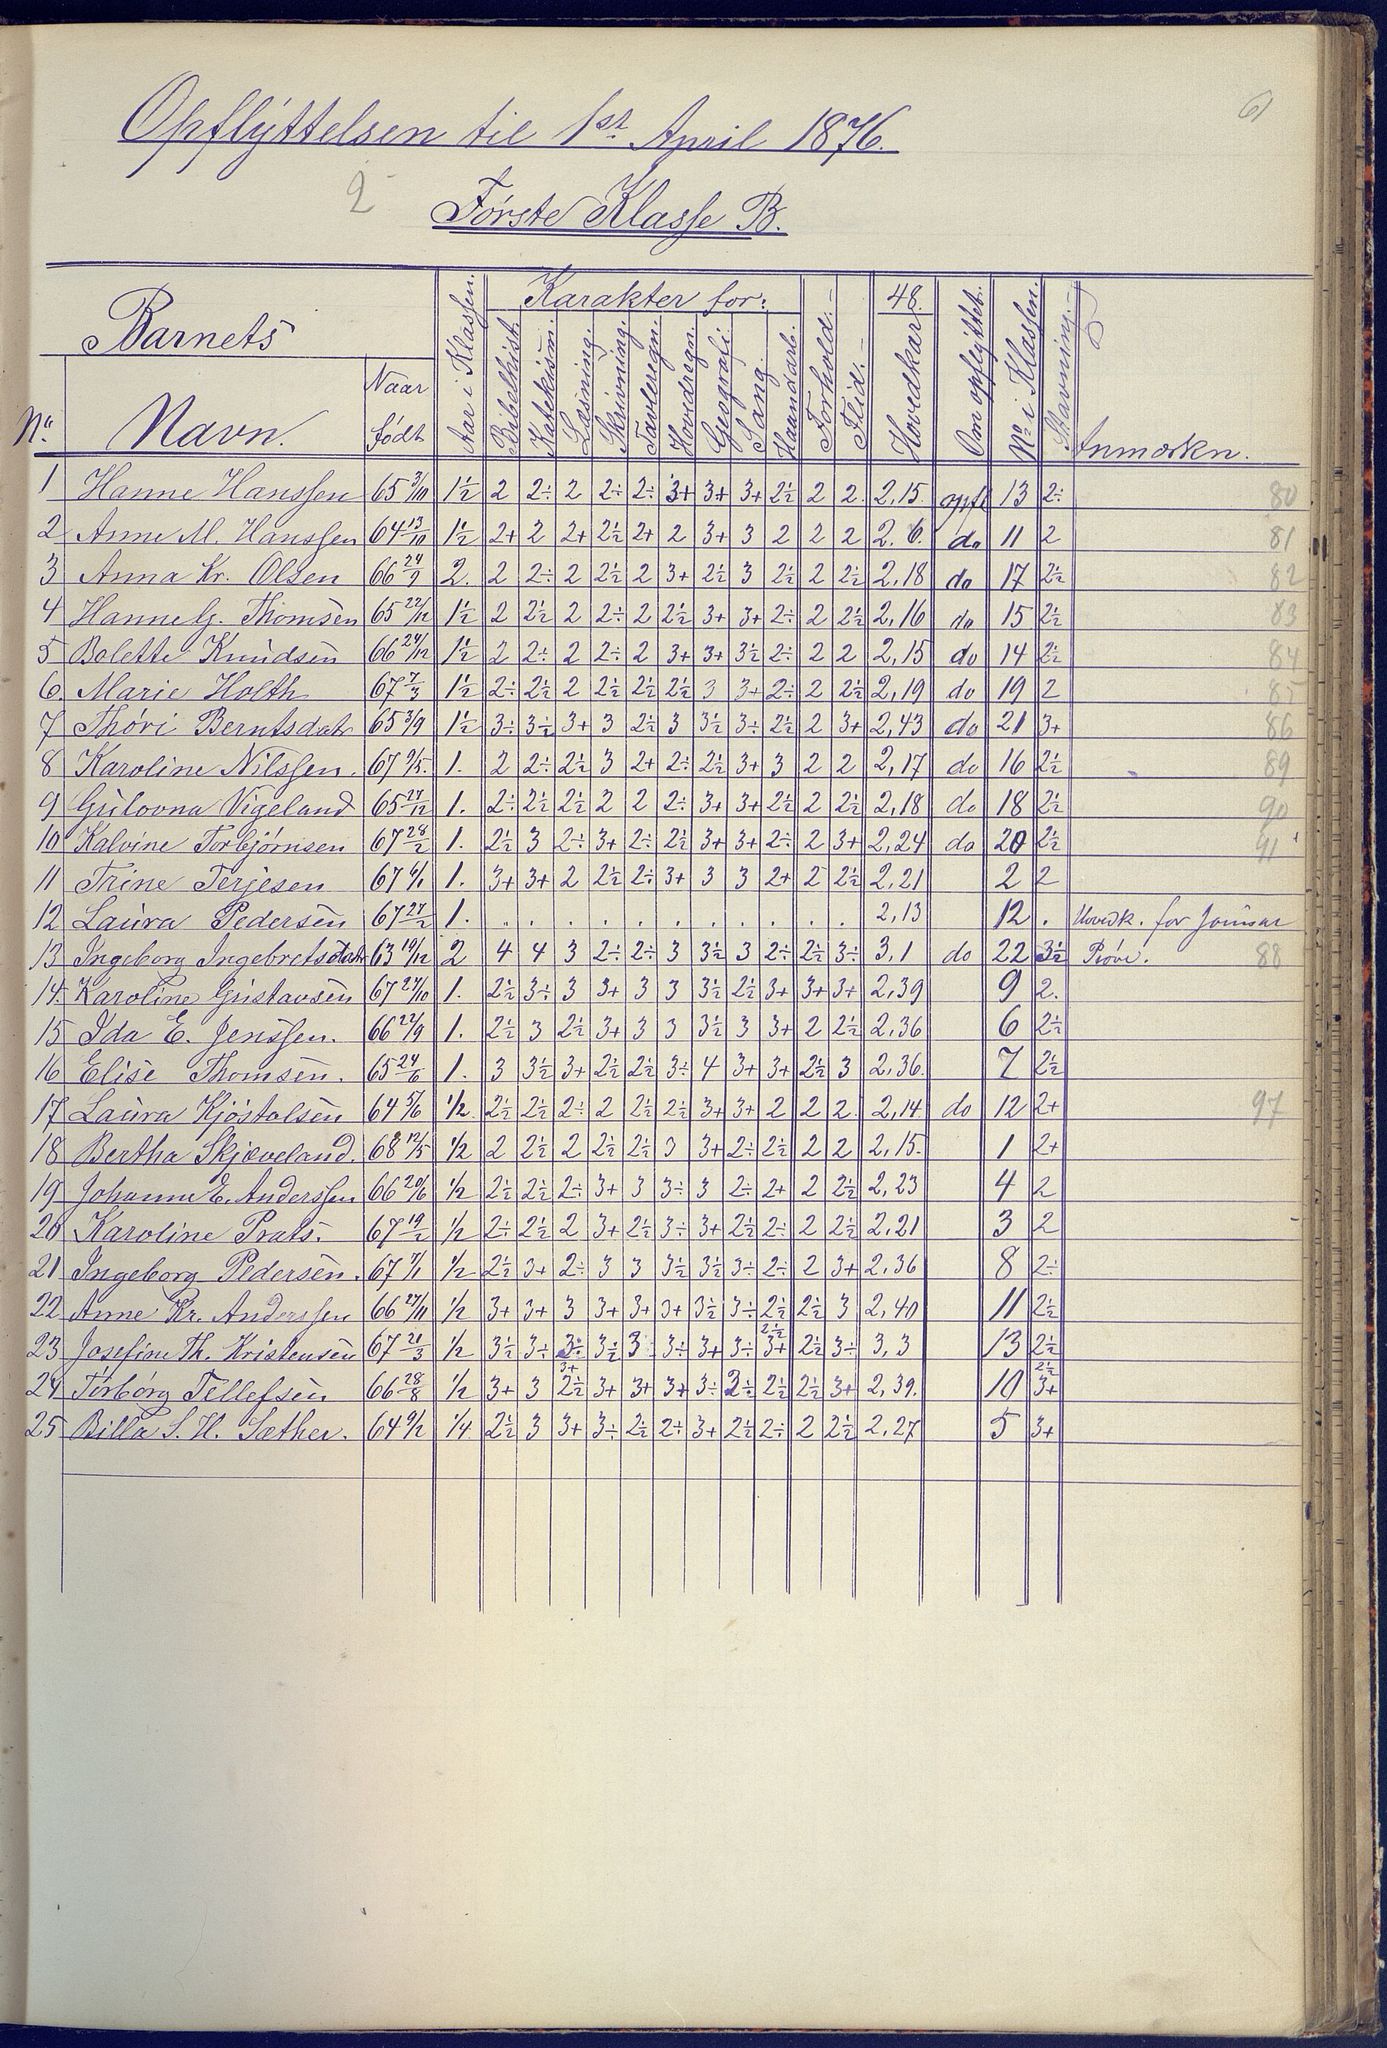 61
Opflyttelsen til 1st April 1876.
2
Første Klasse B.
Barnets
Aar i Klassen.
Karakter for:
Forhold.
Flid.
48.
Hovedkar.
Om opflyttet.
No i Klassen.
Stavning.
Anmærkn.
No Navn. Naar født
Bibelhist. Katekism. Læsning. Skrivning. Tavleregn. Hovedregn. Geografi. Sang. Haandarb.
1 Hanne Hanssen 65 3/10 1½ 2 2÷ 2 2÷ 2÷ 3+ 3+ 3+ 2½ 2 2. 2,15. opfl 13 2÷ 80
2 Anne M. Hanssen 64 13/10 1½ 2+ 2 2+ 2½ 2+ 2 3+ 3 2 2 2 2. 6. do 11 2 81
3 Anna Kr. Olsen 66 24/9 2. 2 2÷ 2 2½ 2 3+ 2½ 3 2½ 2 2½ 2,18 do 17 2½ 82
4 Hanne G. Thomsen 65 22/12 1½ 2 2½ 2 2÷ 2 2½ 3+ 3+ 2÷ 2 2½ 2,16 do 15 2½ 83
5 Bolette Knudsen 66 24/12 1½ 2 2÷ 2 2÷ 2 3+ 3+ 3½ 2÷ 2 2 2,15 do 14 2½ 84
6. Marie Holth 67 7/3 1½ 2÷ 2½ 2 2½ 2½ 2½ 3 3+ 2÷ 2 2½ 2,19 do 19 2 85
7 Thóri Berntsdatr 65 3/9 1½ 3÷ 3½ 3+ 3 2½ 3 3½ 3÷ 2½ 2 3+ 2,43 do 21 3+ 86
8 Karoline Nilssen. 67 9/5. 1. 2 2÷ 2½ 3 2+ 2÷ 2½ 3+ 3 2 2 2,17 do 16 2½ 89
9 Gulovna Vigeland 65 27/12 1. 2÷ 2½ 2½ 2 2 2÷ 3+ 3+ 2½ 2 2½ 2,18 do 18 2½ 90
10 Kalvine Torbjørnsen 67 28/2 1. 2½ 3 2÷ 3+ 2÷ 2½ 3+ 3+ 2÷ 2 3+ 2,24 do 20 2½ 91
11 Trine Terjesen 67 6/1 1. 3+ 3+ 2 2½ 2÷ 3+ 3 3 2+ 2 2½ 2,21 2 2
12 Laura Pedersen 67 27/2 1. . . . . . . . . . . . 2,13 12 . Hovedk. for Januar
13 Ingeborg Ingebretsdatr 63 19/12 2 4 4 3 2÷ 2÷ 3 3½ 3 2÷ 2½ 3÷ 3,1 do 22 3½ Prøve. 88
14. Karoline Gustavsen 67 27/10 1. 2½ 3÷ 3 3+ 3 3 3½ 2½ 3+ 3+ 3+ 2,39 9 2.
15 Ida E. Jenssen. 66 22/9 1. 2½ 3 2½ 3+ 3 3 3½ 3 3+ 2 2½ 2,36 6 2½
16 Elise Thomsen. 65 24/6 1. 3 3½ 3+ 2½ 2½ 3÷ 4 3+ 3+ 2½ 3 2,36. 7 2½
17 Laura Kjøstolsen 64 5/6 1/2. 2½ 2½ 2÷ 2 2½ 2½ 3+ 3+ 2 2 2. 2,14. do 12 2+ 97
18 Bertha Skjæveland. 68 12/5 1/2 2 2½ 2 2½ 2½ 3 3+ 2÷ 2½ 2 2 2,15. 1 2+
19 Johanne E. Anderssen 66 20/6 1/2 2½ 2½ 2÷ 3+ 3 3÷ 3 2÷ 2+ 2 2½ 2,23 4 2
20 Karoline Prats. 67 19/2 1/2 2÷ 2½ 2 3+ 2½ 3÷ 3+ 2½ 2÷ 2 2½ 2,21 3 2
21 Ingeborg Pedersen. 67 7/1 1/2 2½ 3+ 2÷ 3 3 3½ 3½ 3÷ 2÷ 2 3+ 2,36 8 2÷
22 Anne Kr. Anderssen 66 27/11 1/2 3+ 3+ 3 3+ 3+ 3+ 3½ 3÷ 2½ 2½ 3 2,40 11 2½
23 Josefine Th. Kristensen 67 21/3 1/2 3½ 3÷ 3÷ 3½ 3 3÷ 3+ 3÷ 2½ 3+ 2½ 3÷ 3,3 13 2½
24 Torborg Tellefsen 66 28/8 1/2 3+ 3 3+ 2½ 3+ 3+ 3+ 3÷ 2½ 2½ 2½ 3+ 2,39. 10 2½ 3+
25 Billa S. H. Sæther. 64 9/2 1/4 2½ 3 3+ 3÷ 2½ 2÷ 3+ 2½ 2÷ 2 2½ 2,27 5 3+